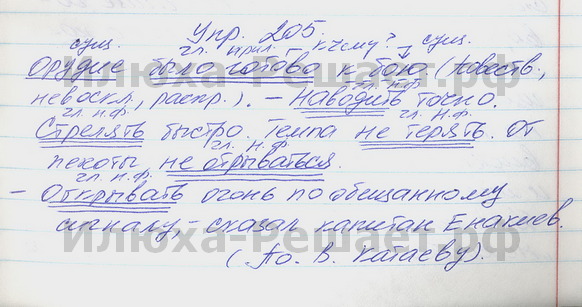 Упр. 205.
сущ. гл. прил. к чему? сущ.
Орудие было готово к бою (повеств.,
гл. н.ф.
невоскл., распр.). – Наводить точно.
гл. н.ф. гл. н.ф.
Стрелять быстро. Темпа не терять. От
гл. н.ф.
пехоты не отрываться.
гл. н.ф.
– Открывать огонь по обещанному
сигналу, – сказал капитан Енакиев.
(По В. Катаеву).
Илюха-Решает.рф
Илюха-Решает.рф